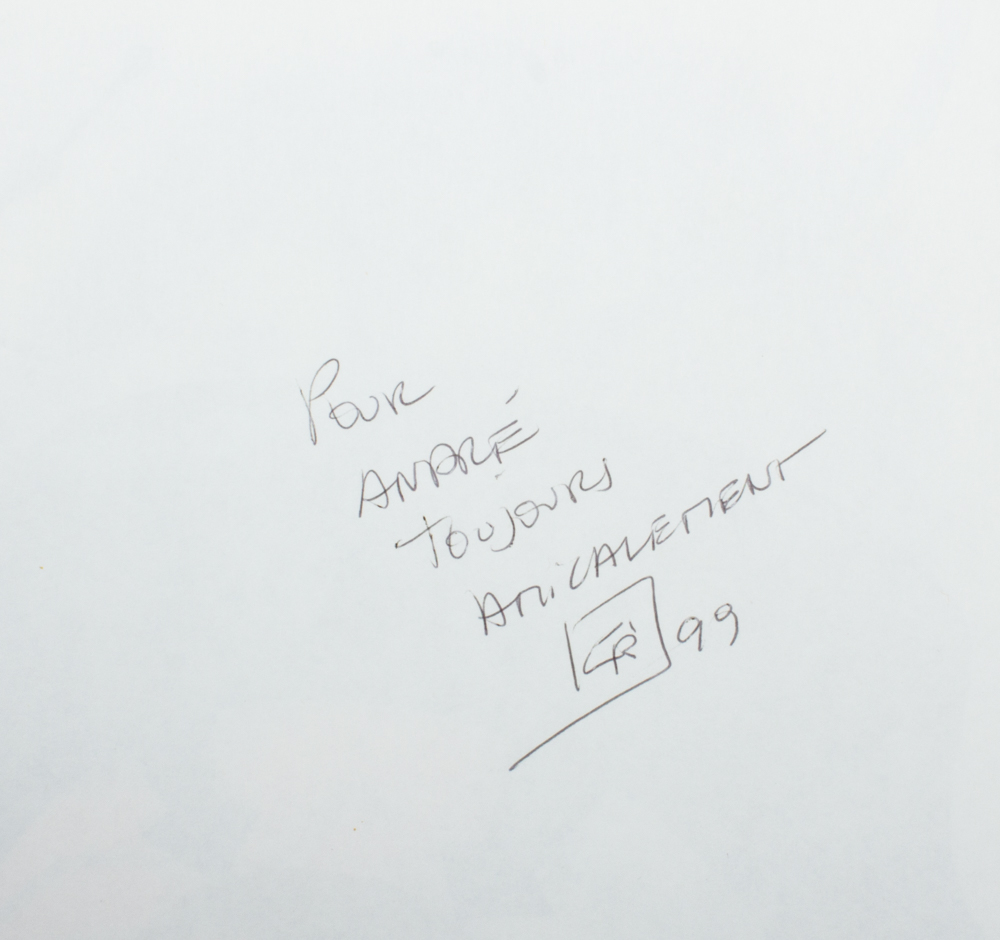 Pour
ANDRÉ
TOUJOURS
AMiCALEMENT
99